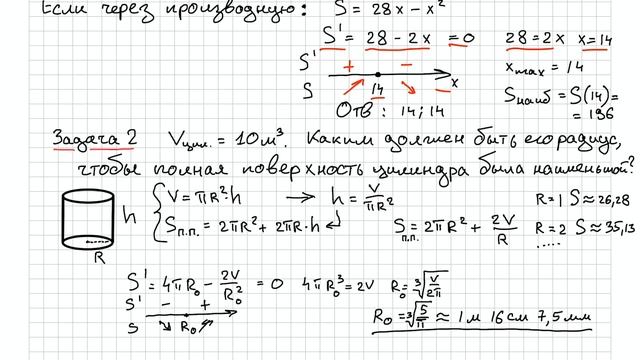 Если через производную: S = 28x - x²
S' = 28 - 2x = 0 28 = 2x x = 14
S' + - x_max = 14
S 14 x S_наиб = S(14) =
= 196
Отв: 14; 14
Задача 2 V_цил. = 10 м³. Каким должен быть его радиус,
чтобы полная поверхность цилиндра была наименьшей?
h { V = πR²·h → h = V/(πR²) R = 1 S ≈ 26,28
S_п.п. = 2πR² + 2πR·h S_п.п. = 2πR² + 2V/R R = 2 S ≈ 35,13
R .....
S' = 4πR₀ - 2V/R₀² = 0 4πR₀³ = 2V R₀ = ³√(V/2π)
S' - +
S R₀ R₀ = ³√(5/π) ≈ 1 м 16 см 7,5 мм